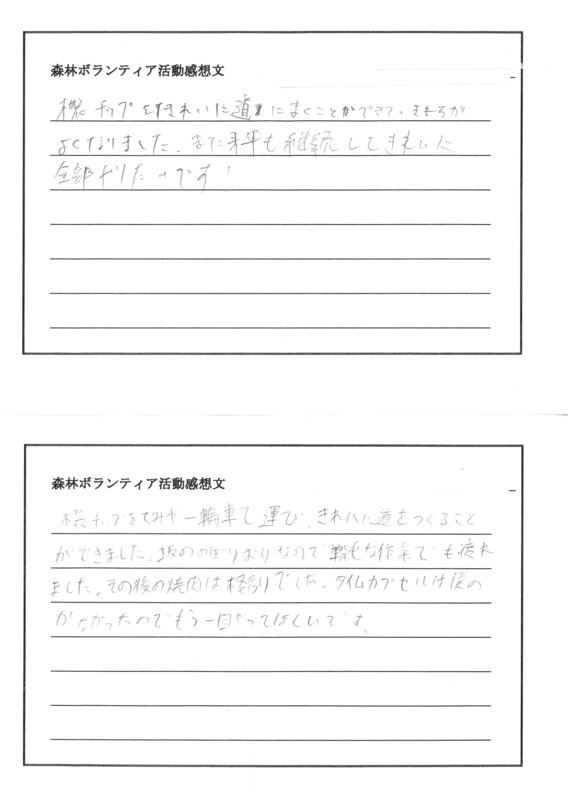 森林ボランティア活動感想文
チップをきれいに道にまくことができて、きもちが
よくなりました。また来年も継続してきれいに
全部やりたいです!
森林ボランティア活動感想文
桜チップをてみや一輪車で運び、きれいに道をつくること
ができました。坂ののぼりおりなので単純な作業でも疲れ
ました。その後の焼肉は格別でした。タイムカプセルは僕の
がなかったのでもう一回やってほしいです。